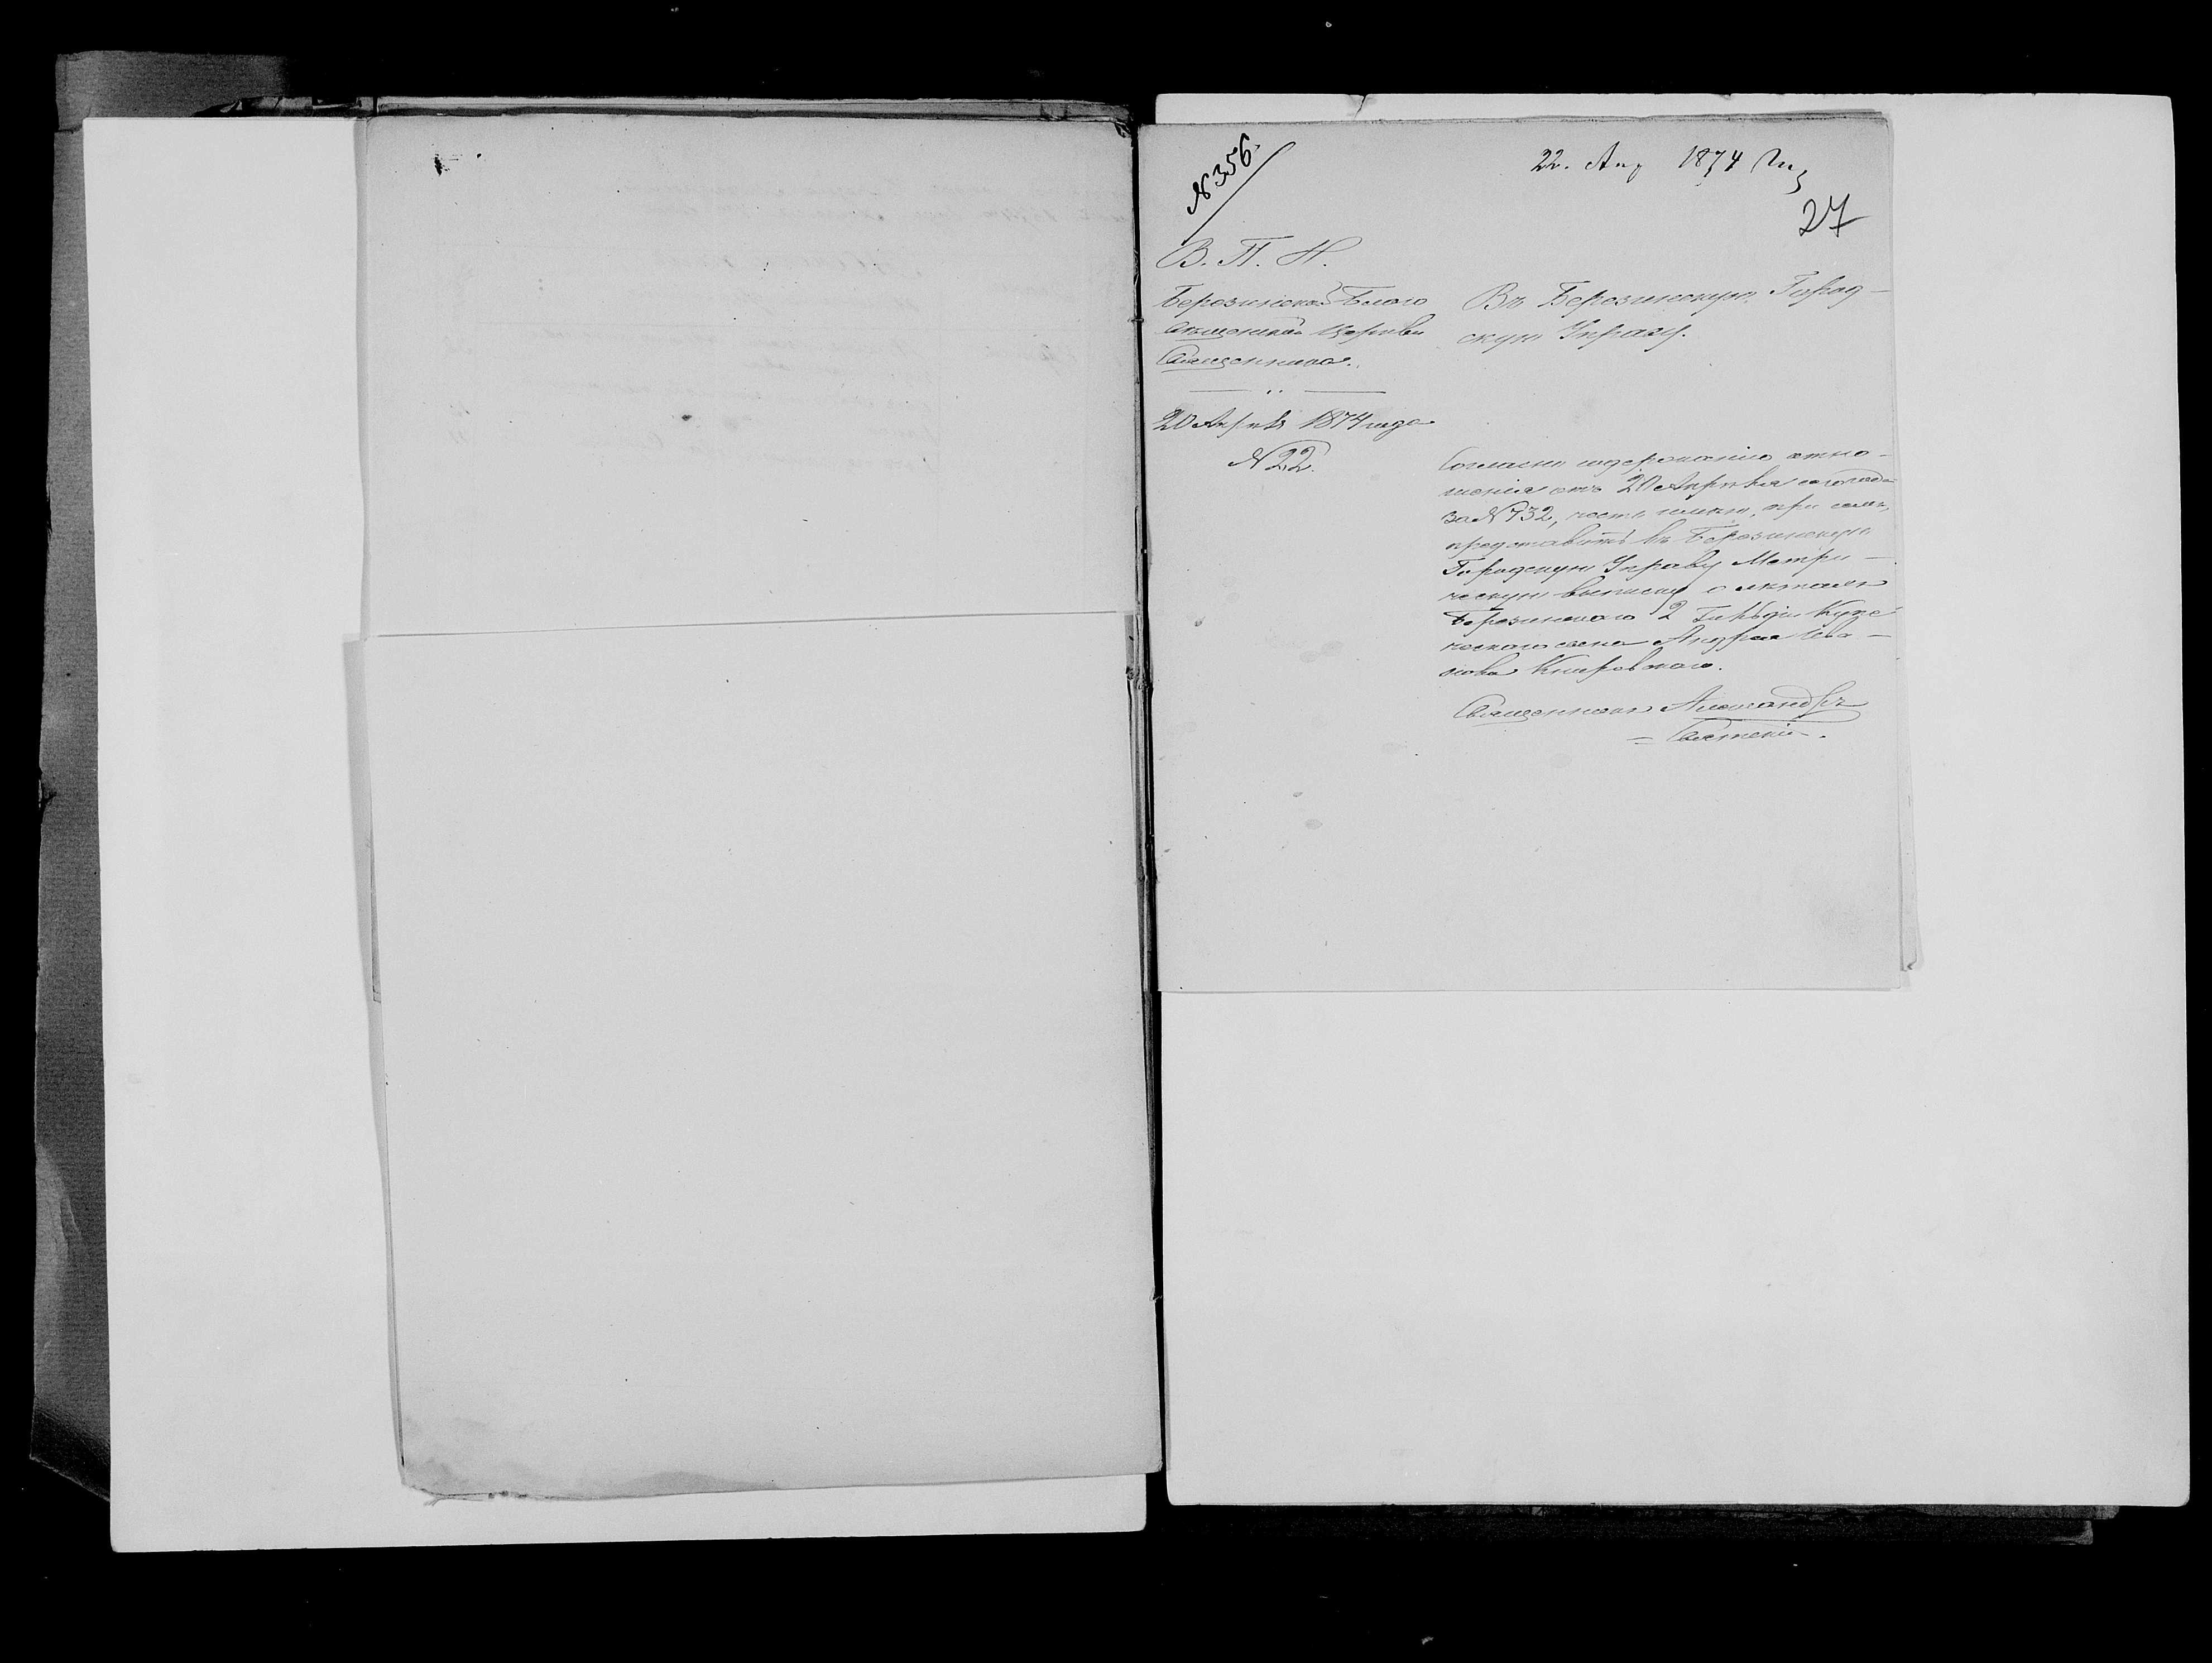 № 356.
22. Апр 1874
27
В. П. И.
Березинской Благо
вѣщенской Церкви
Священника.
20 Апрѣля 1874 года
№ 22.
Въ Березинскую Город-
скую Управу.
Согласно содержанію отно-
шенія отъ 20 Апрѣля сего года
за № 732, честь имѣю, при семъ,
представить въ Березинскую
Городскую Управу Метри-
ческую выписку о лѣтахъ
Березинскаго 2 Гильдіи Купе
ческаго сына Андрея Ива-
нова
Священникъ Александръ